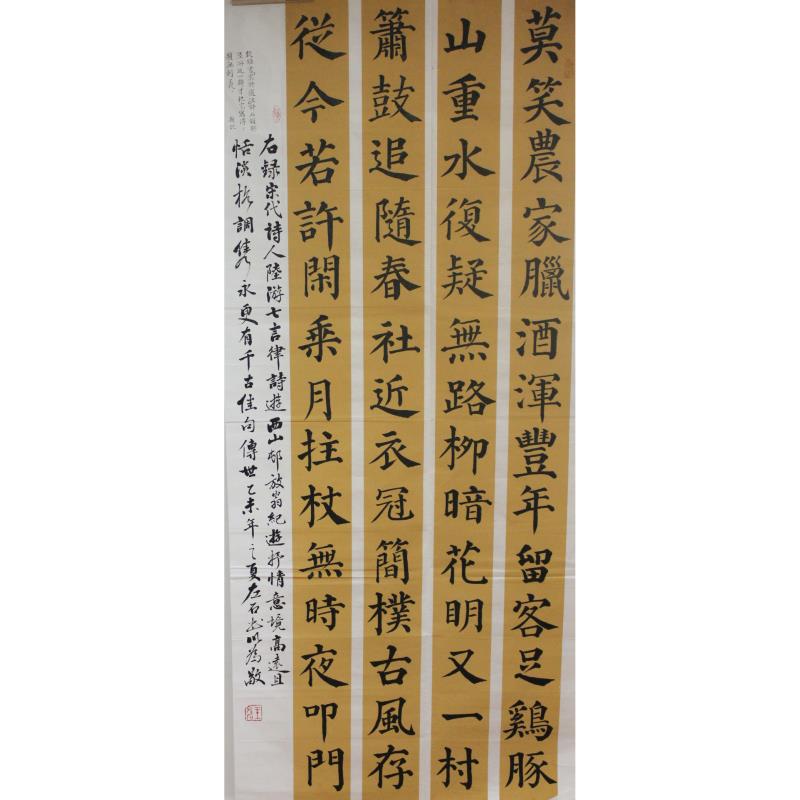 莫笑農家臘酒渾豐年留客足鷄豚
山重水復疑無路柳暗花明又一村
簫鼓追隨春社近衣冠簡樸古風存
從今若許閑乘月拄杖無時夜叩門
右録宋代詩人陸游七言律詩遊西山邨放翁紀遊抒情意境高遠且
恬淡格調雋永更有千古佳句傳世乙未年之夏左石書以為敬